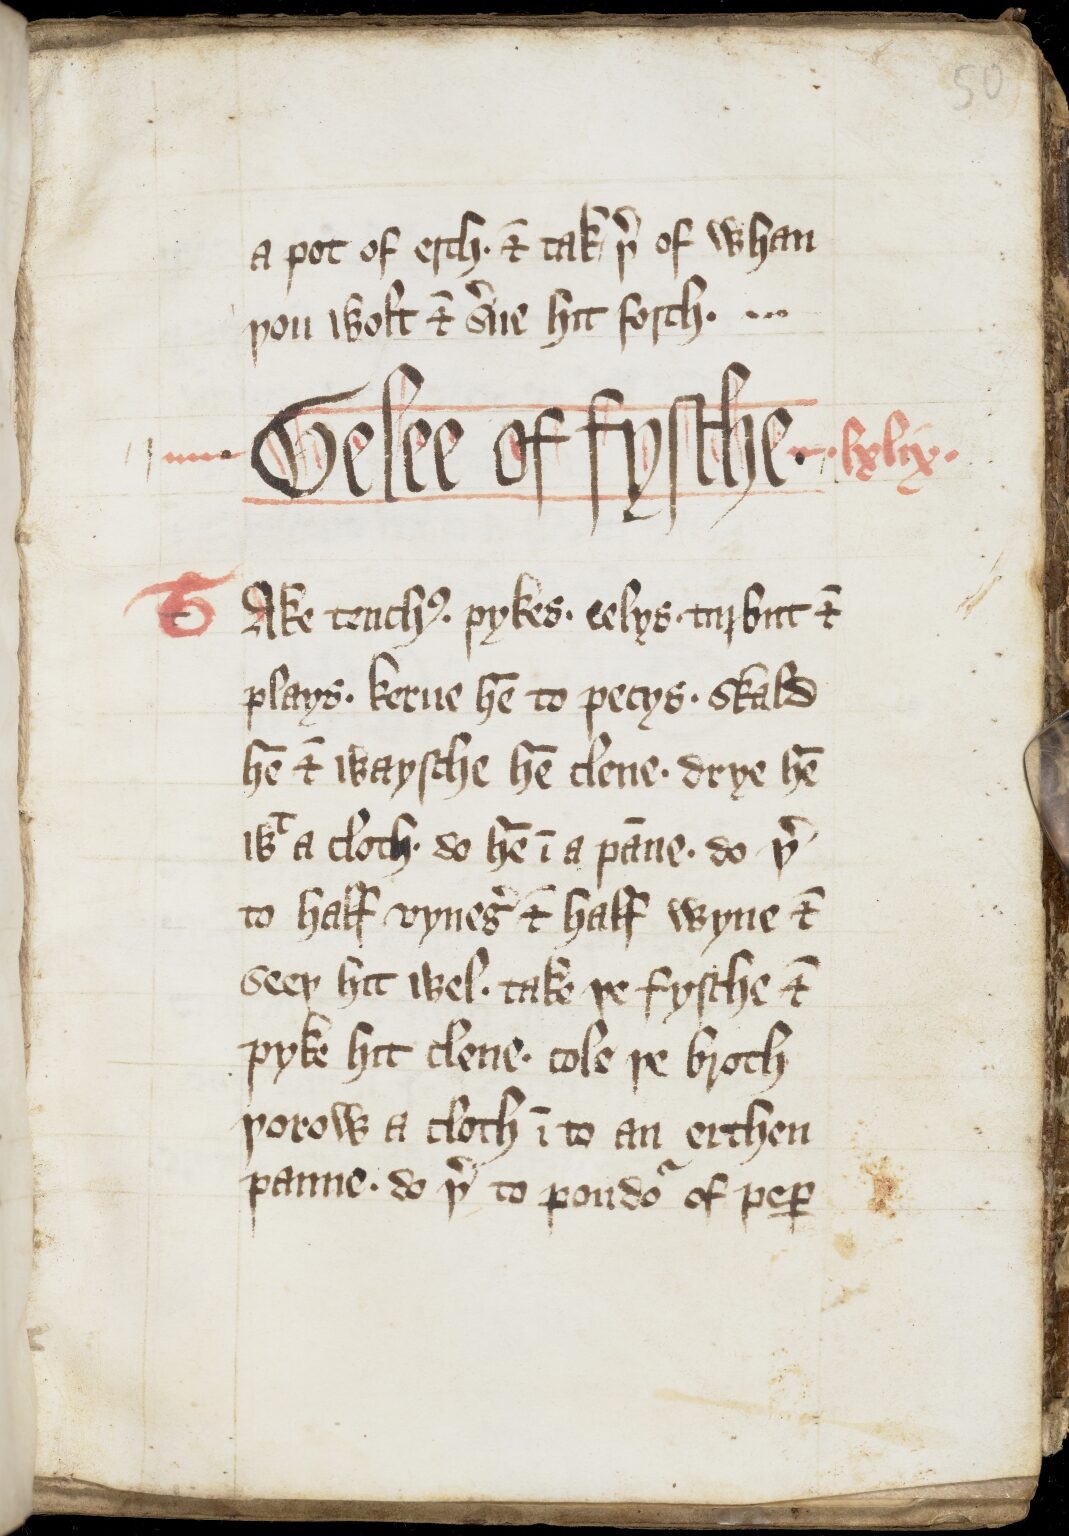 50
a pot of erth. ⁊ tak þʳ of whan
you wolt ⁊ sʳue hit forth.
Gelee of fysche. .lxlix.
TAke tenchꝰ. pykes. eelys. turbut ⁊
plays. kerue hē to pecys. skald
hē ⁊ waysche hē clene. drye hē
wᵗ a cloth. do hē ī a pāne. do þʳ
to half vynegʳ ⁊ half wyne ⁊
seeþ hit wel. take þe fysche ⁊
pyke hit clene. cole þe broth
þorow a cloth ī to an erthen
panne. do þʳ to poudoʳ of peꝑ